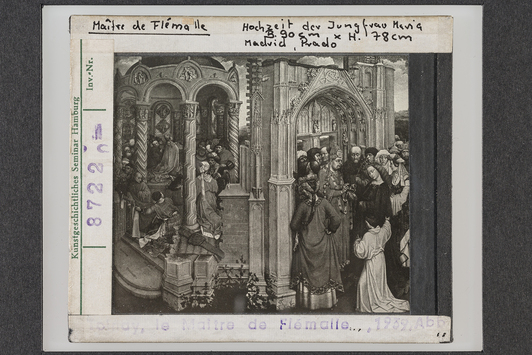 Maître de Flémalle
Hochzeit der Jungfrau Maria
B. 90 cm x H. 78 cm
Madrid, Prado
Kunstgeschichtliches Seminar Hamburg
Inv.-Nr.
8722
le Maître de Flémalle, 1939, Abb